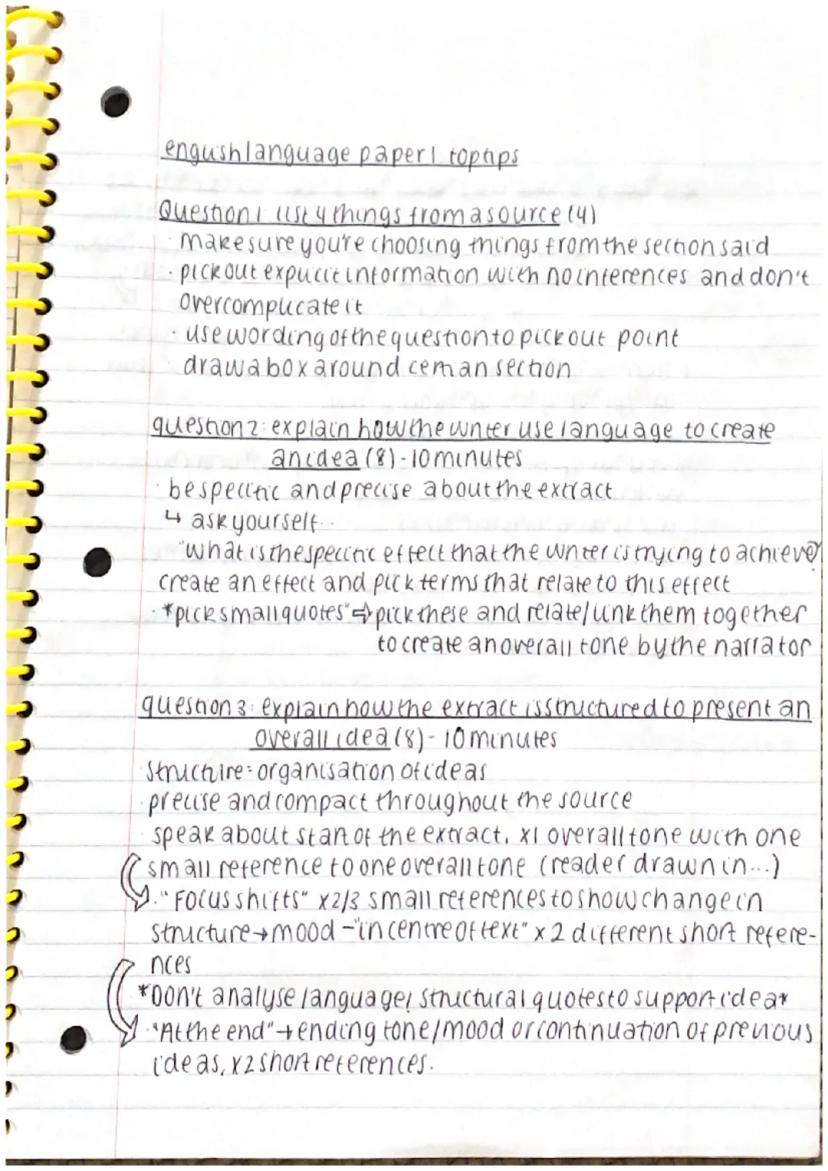 english language paper 1 top tips
Question 1 list 4 things from a source (4)
· make sure you're choosing things from the section said
· pick out explicit information with no inferences and don't
overcomplicate it
· use wording of the question to pick out point
draw a box around certain section
question 2: explain how the writer use language to create
an idea (8) - 10 minutes
· be specific and precise about the extract
↳ ask yourself...
"what is the specific effect that the writer is trying to achieve?
create an effect and pick terms that relate to this effect
· *pick small quotes* ⇨ pick these and relate/link them together
to create an overall tone by the narrator
question 3: explain how the extract is structured to present an
overall idea (8) - 10 minutes
· structure = organisation of ideas
· precise and compact throughout the source
· speak about start of the extract, x1 overall tone with one
small reference to one overall tone (reader drawn in...)
· "Focus shifts" x2/3 small references to show change in
structure → mood - "in centre of text" x 2 different short refere-
nces
*Don't analyse language, structural quotes to support idea*
· "At the end" → ending tone/mood or continuation of previous
ideas, x2 short references.